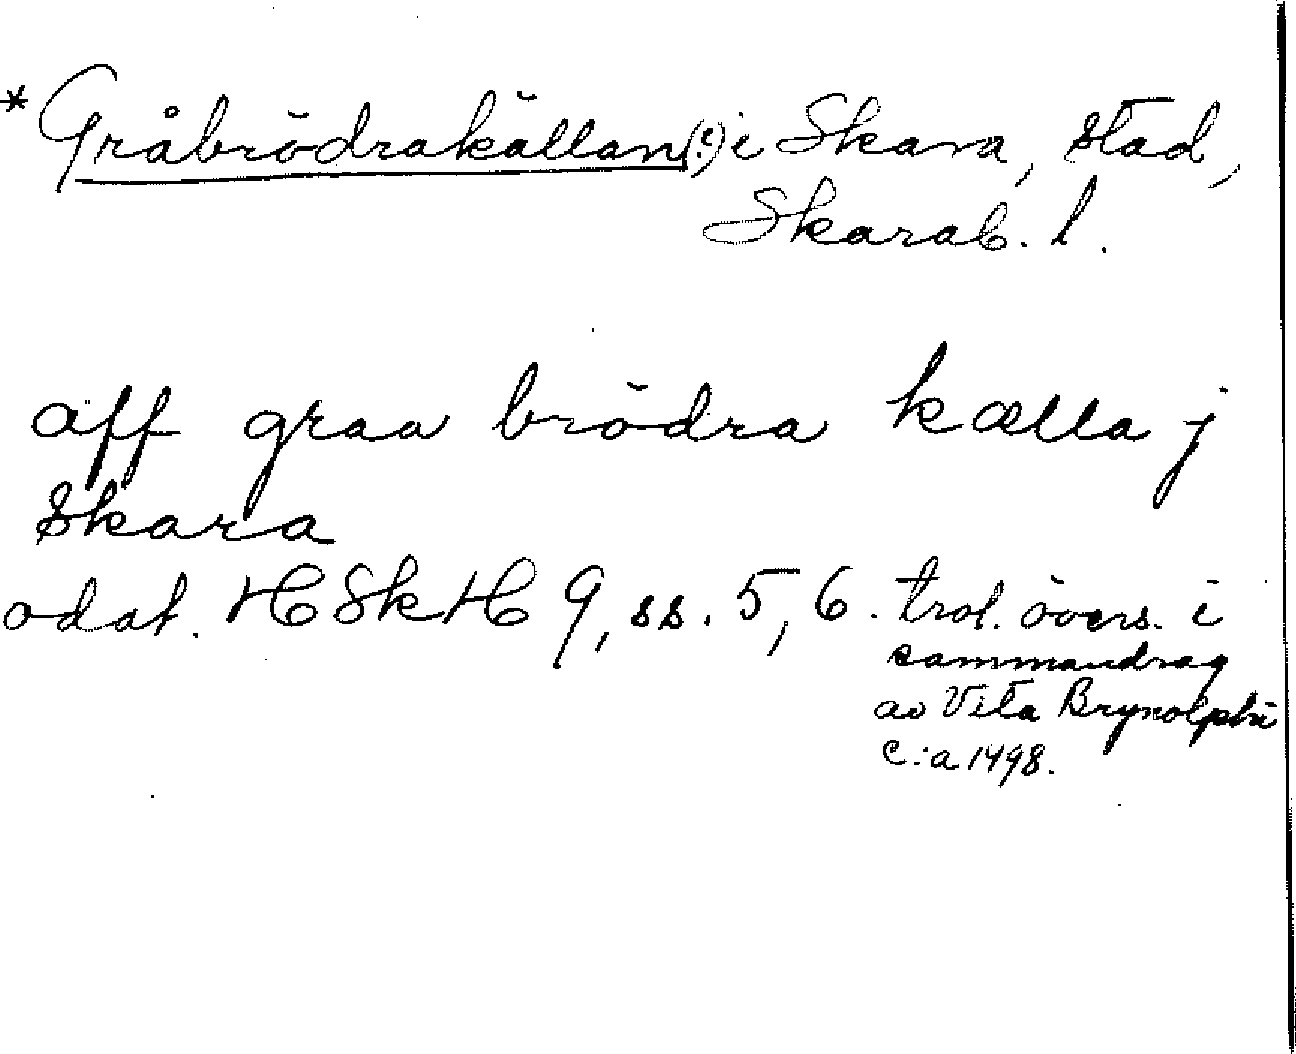 *Gråbrödrakällan(?) i Skara, stad,
Skarab. l.
aff graa brödra kælla j
Skara
odat. HSkH 9, ss. 5, 6. trol. övers. i
sammandrag
av Vita Brynolphi
c:a 1498.